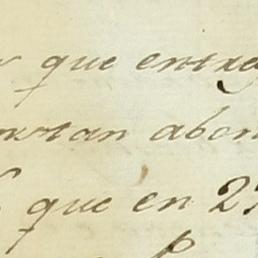 que entreg
constan abon
que en 27